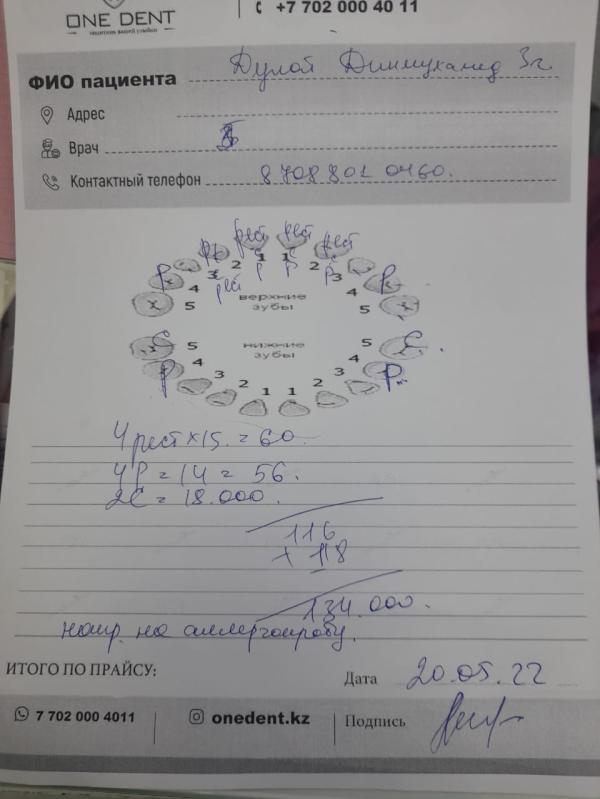 ONE DENT
защитник вашей улыбки
+7 702 000 40 11
ФИО пациента Дулат Динмухамед 3г.
Адрес
Врач
Контактный телефон 8 708 801 0460.
рест рест рест
1 1
2 2
3 3
рест
P P
4 4
5 5
верхние
зубы
нижние
зубы
C C.
5 5
4 4
P P
3 3
2 1 1 2
4 рест x 15. = 60.
4P = 14 = 56.
2C = 18.000.
116
+ 18
134.000.
напр. на аллергопробу.
ИТОГО ПО ПРАЙСУ:
Дата 20.05.22
7 702 000 4011 onedent.kz Подпись